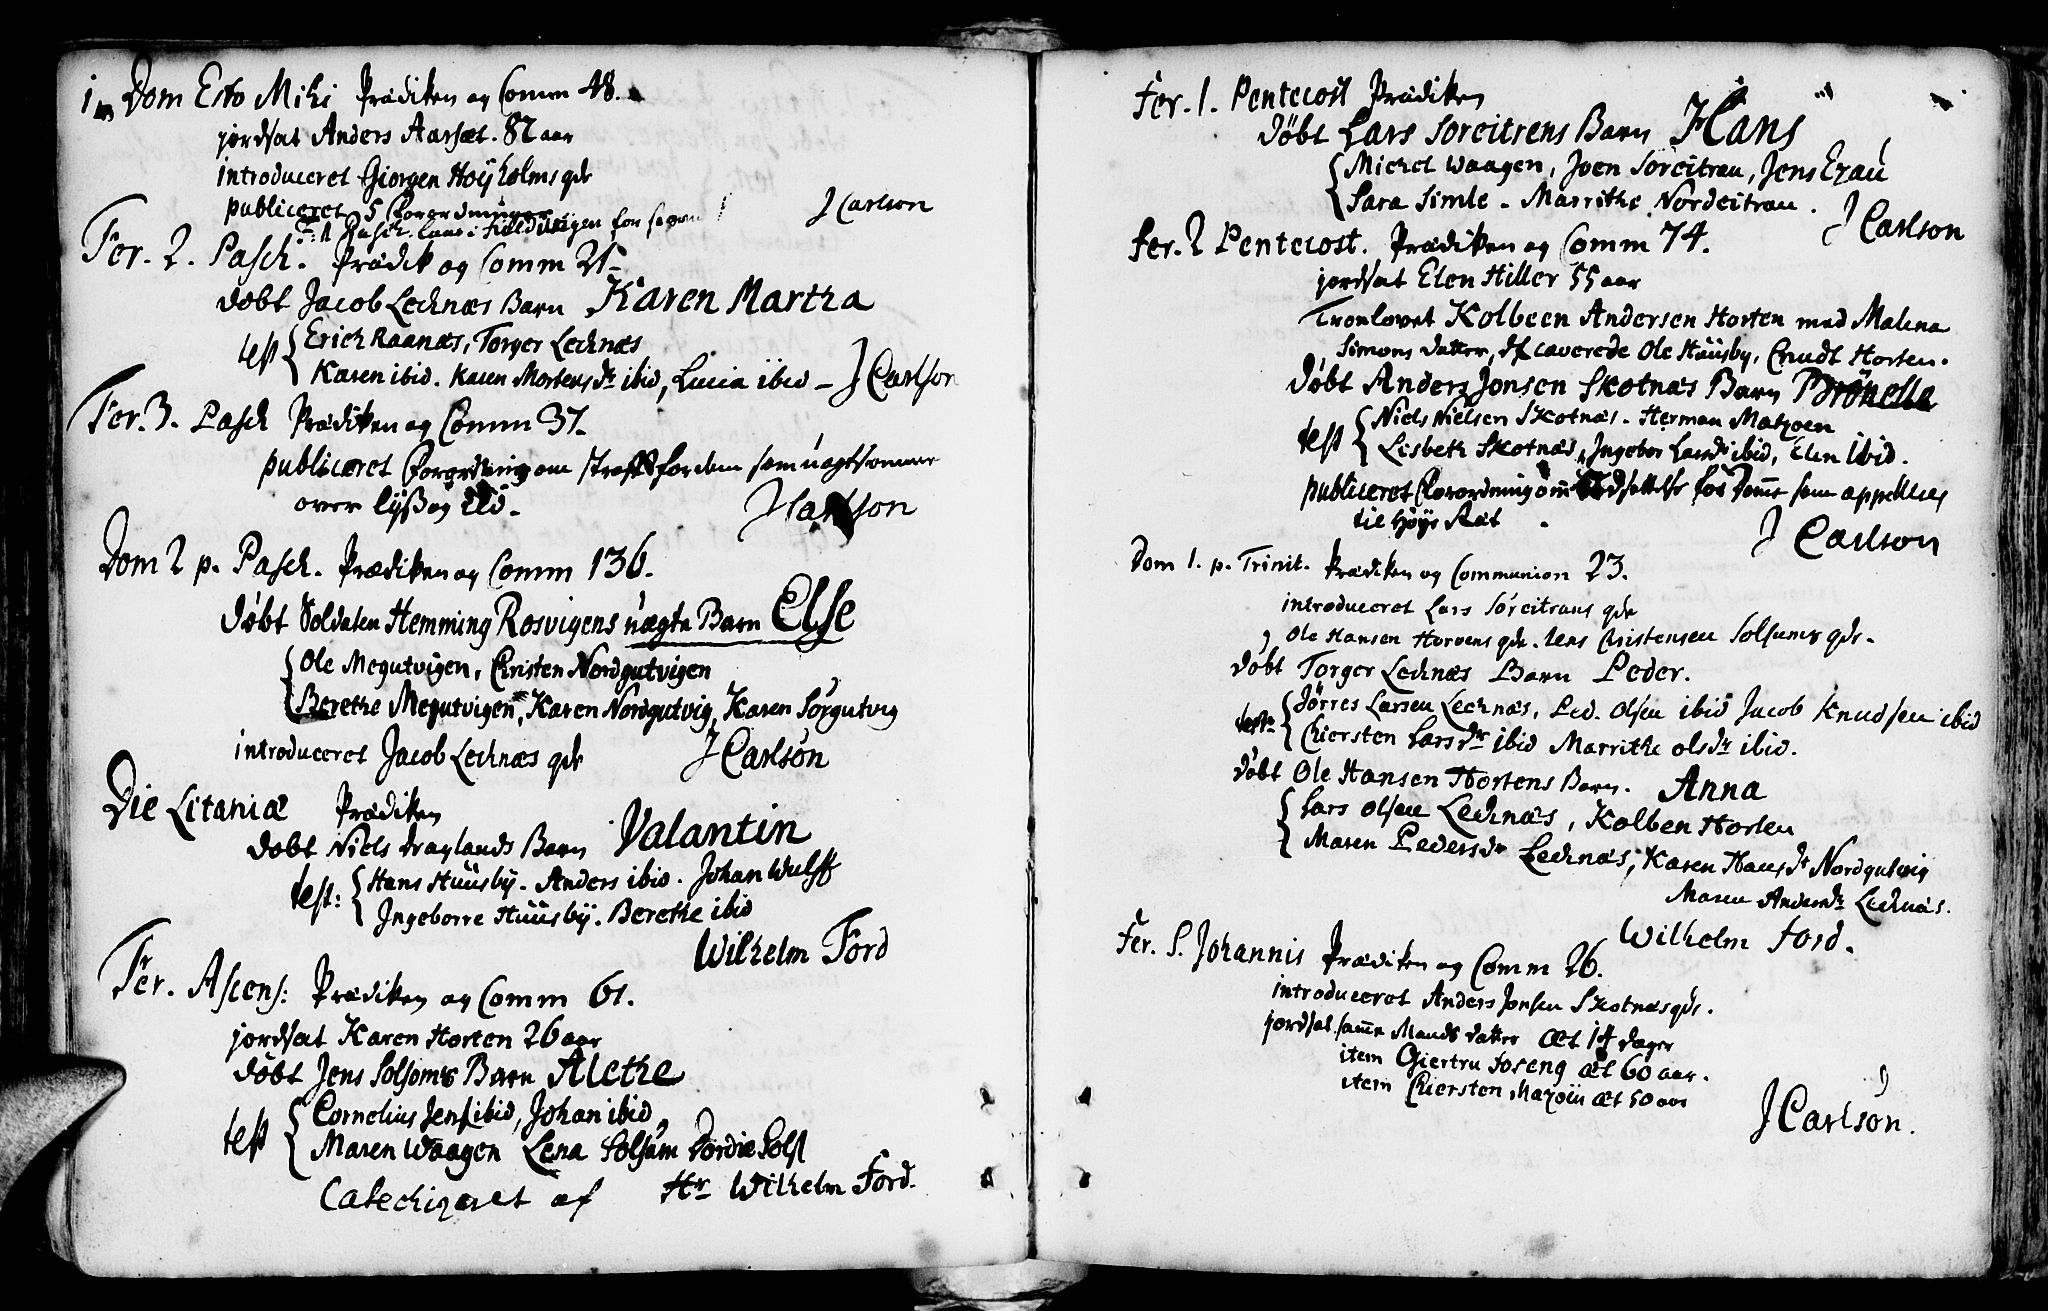 Dom Esto Mihi Prædiken og Comm 48.
jordsat Anders Aarsæt. 87 aar
introduceret Giorgen Høyholms qde
publiceret 5 Forordninger
J Carlson
Fer. 2. Pasch. Prædik og Comm 21
døbt Jacob Lechnæs Barn Karen Martha
test Erich Raanæs, Torger Lechnæs
Karen ibid. Karen Mortensdr ibid, Lucia ibid J Carlson
Fer. 3. Pasch Prædiken og Comm 37.
publiceret Forordning om straff for dem som uagtsomme
over lyß og Ild.
J Carlson
Dom 2 p. Pasch. Prædiken og Comm 136.
døbt Soldaten Hemming Rosvigens uægte Barn Else
Ole Megutvigen, Christen Nordgutvigen
Berethe Megutvigen, Karen Nordgutvig, Karen Sørgutvig
introduceret Jacob Lechnæs qde J Carlson
Die Litaniæ Prædiken
døbt Niels Draglands Barn Valantin
test: Hans Huusby. Anders ibid. Johan Wulff
Ingeborre Huusby. Berethe ibid
Wilhelm Ford
Fer. Ascens: Prædiken og Comm 61.
jordsat Karen Horten 26 aar
døbt Jens Solsoms Barn Alethe
test Cornelius Jens ibid, Johan ibid,
Maren Waagen Lena Solsum Dordie Sols
Catechizeret af Hr Wilhelm Ford.
Fer. 1. Pentecost Prædiken
døbt Lars Soreitrens Barn Hans
Michel Waagen, Joen Soreitran, Jens Ezau
Sara Simle - Marrithe Nordeitran.
J Carlson
fer. 2 Pentecost. Prædiken og Comm 74.
jordsat Elen Hiller 55 aar
Troelovet Kolbeen Andersen Horten med Malena
Simons datter, Ole Huusby, Cnudt Horten.
døbt Anders Jonsen Skotnæs Barn Brønelle
test Niels Nielsen Skotnæs. Herman Matzoen
Lisbeth Skotnæs, Ingebor Larsdr ibid, Elen ibid.
publiceret Forordning om for dennt som appelleres
til Høye Ræt
J Carlson
Dom 1. p. Trinit. Prædiken og Communion 23.
introduceret Lars Soreitrans qde
Ole Hansen Hortens qde. Jens Christensen Solsums qde.
døbt Torger Lechnæs Barn Peder.
test: Jørres Larsen Lechnæs, Ped. Olsen ibid Jacob Knudsen ibid
Chiersten Larsdr ibid Marrithe Olsdr ibid.
døbt Ole Hansen Hortens Barn. Anna
Lars Olsen Lechnæs, Kolben Horten
Maren Pedersdr Lechnæs, Karen Hansdr Nordgutvig
Maren Andersdr Lechnæs.
Wilhelm Ford.
Fer. S. Johannis Prædiken og Comm 26.
introduceret Anders Jonsen Skotnæs qde.
jordsat samme Mands datter æt 14 dager
item Giertru Foseng æt 60 aar.
item Chiersten Mazoin æt 50 aar
J Carlson.